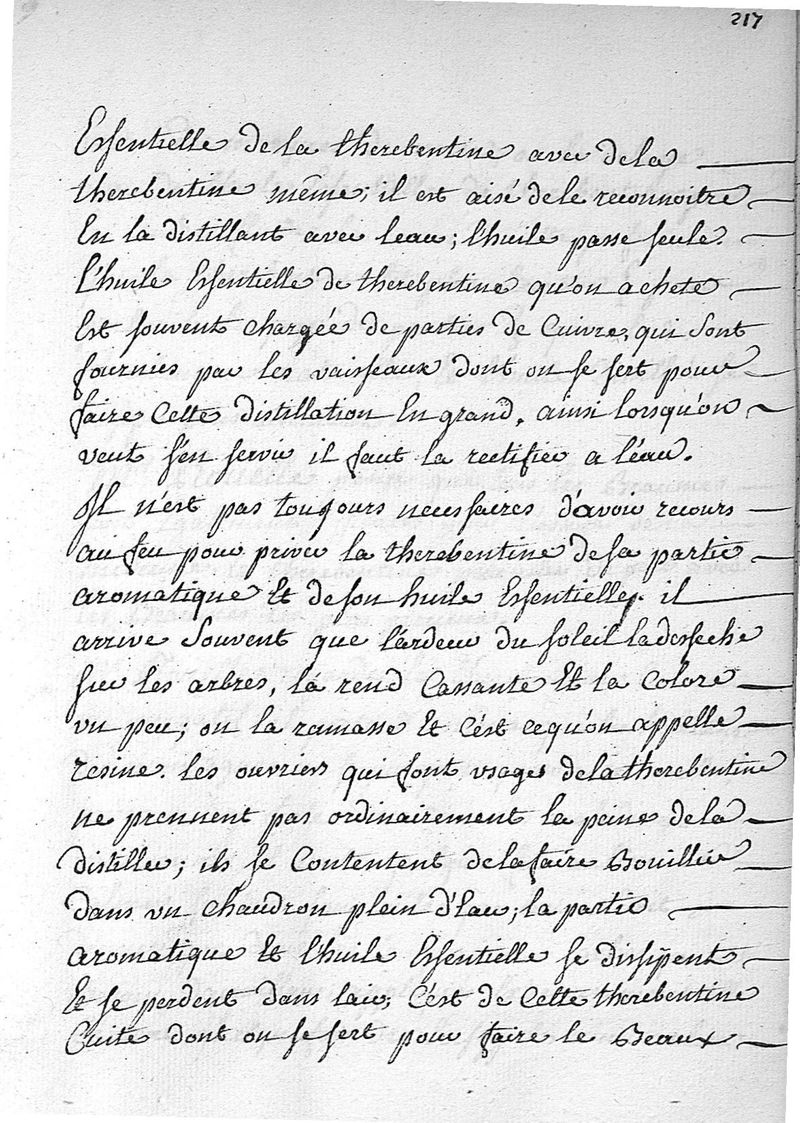 217
Essentielle de la therebentine avec de la
therebentine même; il est aisé de le reconnoitre
En la distillant avec leau; l'huile passe seule.
L'huile Essentielle de therebentine qu'on achete
Est souvent chargée de parties de Cuivre, qui sont
fournies par les vaisseaux dont on se sert pour
faire Cette distillation En grand, ainsi lorsqu'on
veut s'en servir il faut la rectifier a l'eau.
Il n'est pas toujours necessaires d'avoir recours
au feu pour priver la therebentine de sa partie
aromatique Et de son huile Essentielle. il
arrive souvent que l'ardeur du soleil la desseche
sur les arbres, la rend Cassante Et la Colore
un peu; on la ramasse Et C'est ce qu'on appelle
resine. les ouvriers qui font usage de la therebentine
ne prennent pas ordinairement la peine de la
distiller; ils se Contentent de la faire Bouillir
dans un chaudron plein d'Eau; la partie
aromatique Et l'huile Essentielle se dissipent
Et se perdent dans lair; C'est de Cette therebentine
Cuite dont on se sert pour faire le Beaux